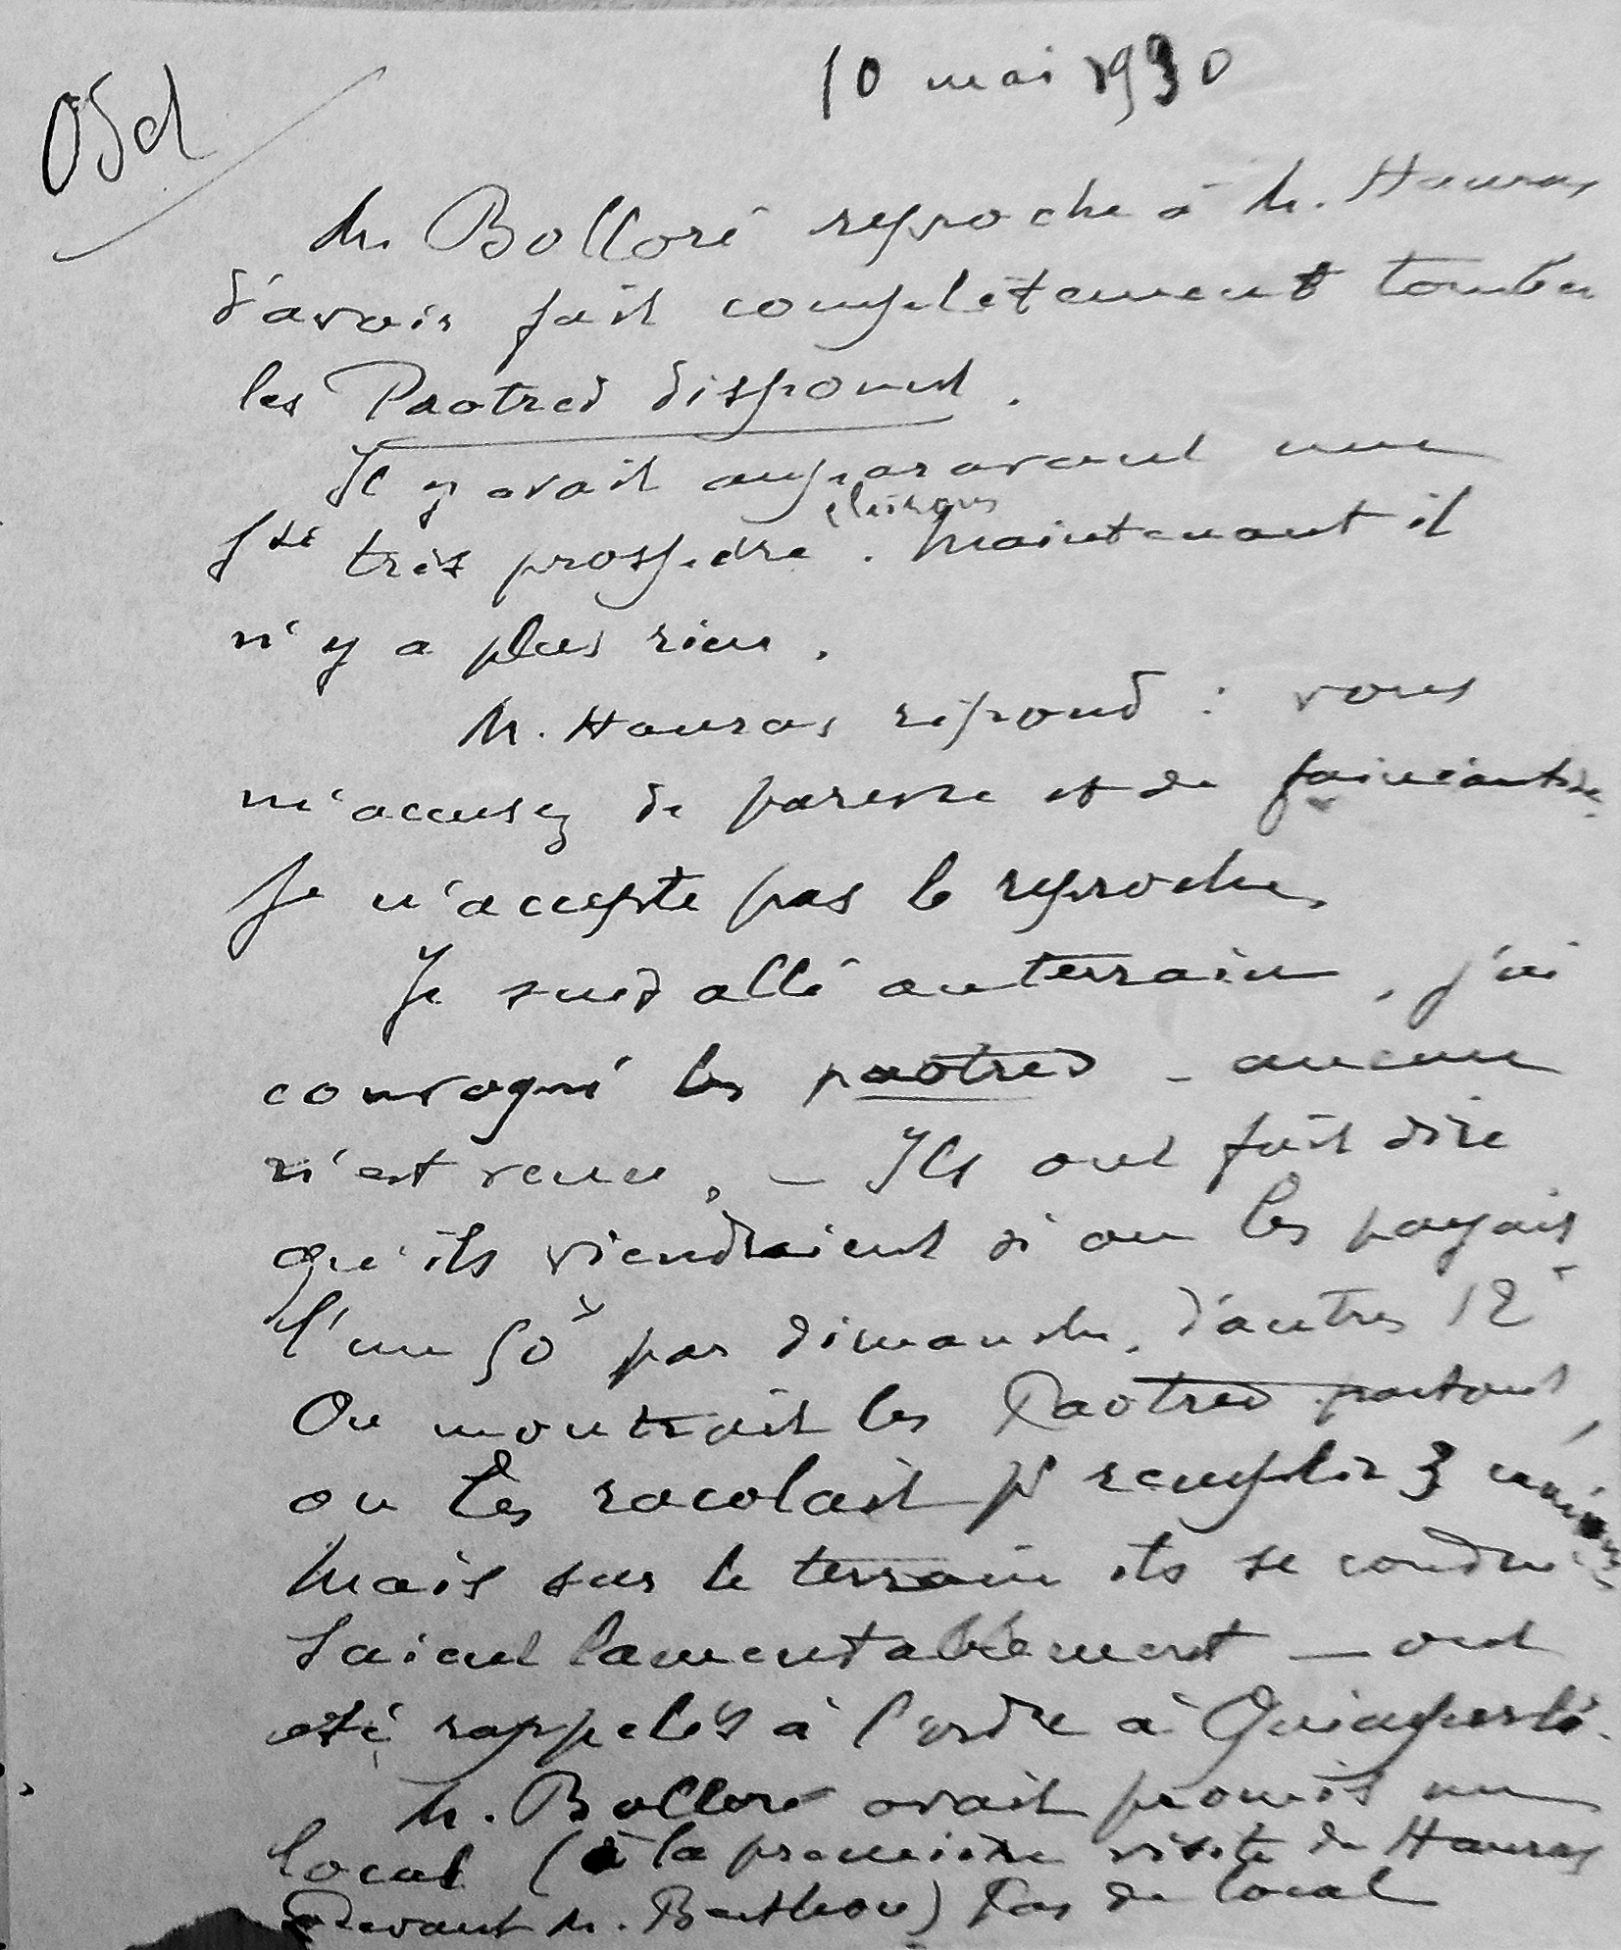 10 mai 1930
M. Bolloré reproche à M. Hauras
d'avoir fait complètement tomber
les Paotred dispount.
Il y avait auparavant une
Sté très prospère. Maintenant il
n'y a plus rien.
M. Hauras répond : vous
m'accusez de paresse et de fainéantise
Je n'accepte pas le reproche.
Je suis allé au terrain, j'ai
convoqué les paotred - aucun
n'est venu. - Ils ont fait dire
qu'ils viendraient si on les payait
l'un 50 f par dimanche, d'autres 12 f
On montrait les Paotred partout,
on les racolait pr remplir 3
Mais sur le terrain ils se condui-
saient lamentablement - ont
été rappelés à l'ordre à Quimperlé.
M. Bolloré avait promis un
local (à la première visite de Hauras
devant M. Berthou) Pas de local